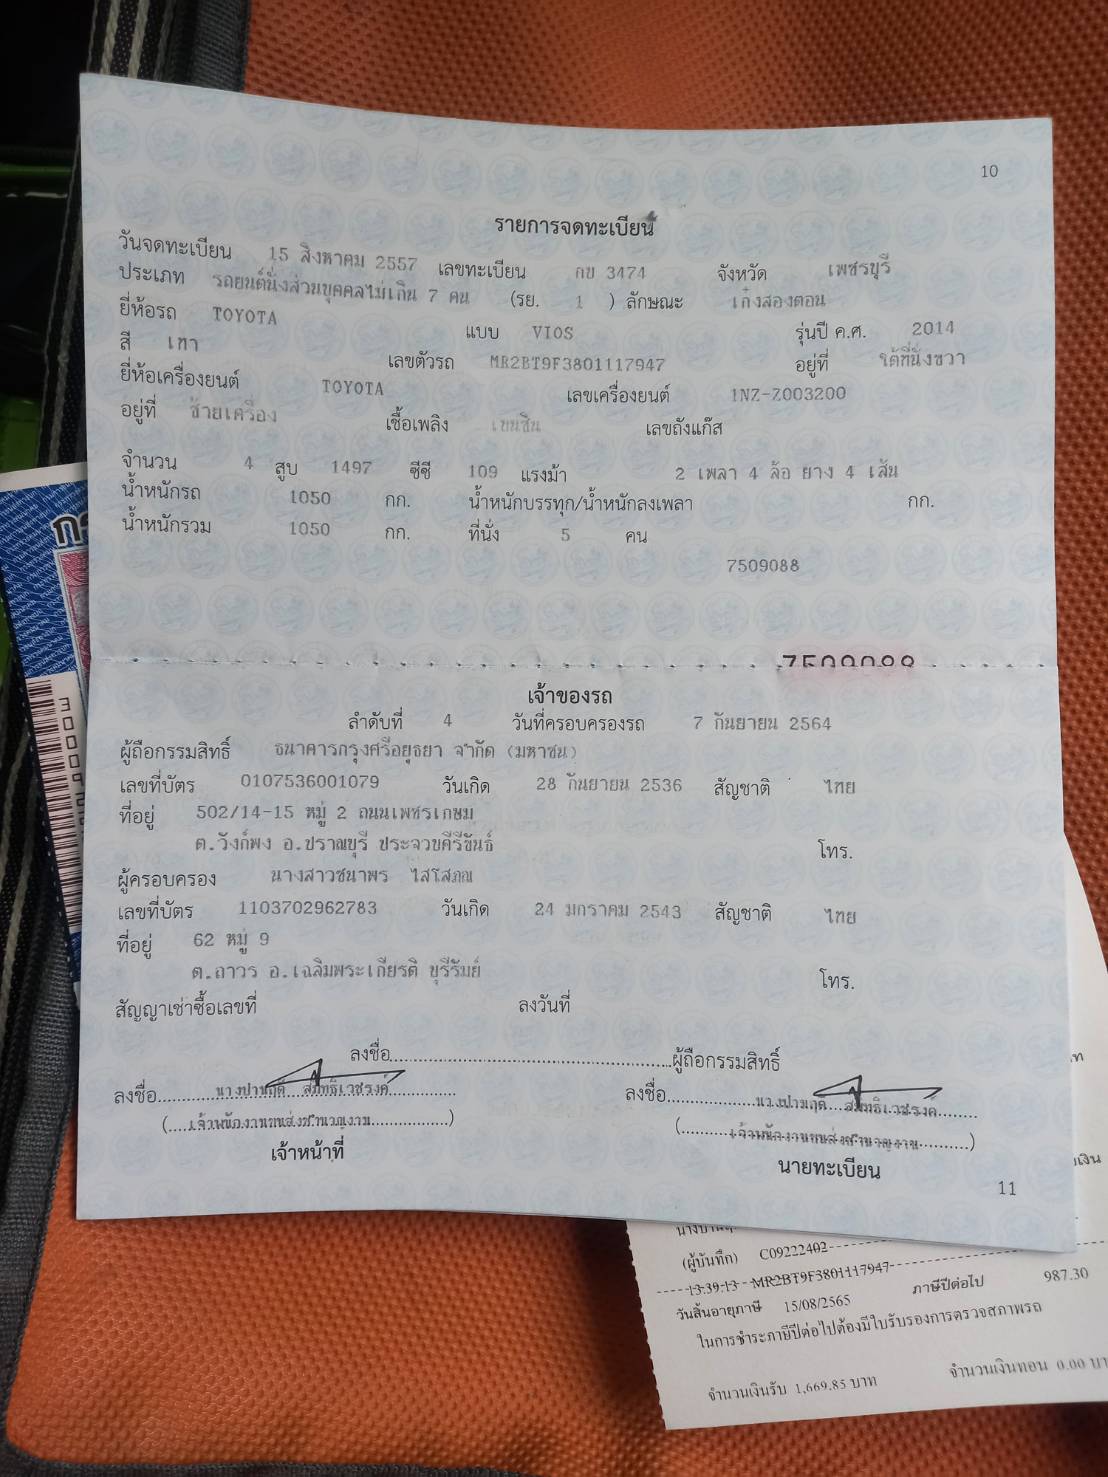 10
รายการจดทะเบียน
วันจดทะเบียน 15 สิงหาคม 2557 เลขทะเบียน กข 3474 จังหวัด เพชรบุรี
ประเภท รถยนต์นั่งส่วนบุคคลไม่เกิน 7 คน (รย. 1 ) ลักษณะ เก๋งสองตอน
ยี่ห้อรถ TOYOTA แบบ VIOS รุ่นปี ค.ศ. 2014
สี เทา เลขตัวรถ MR2BT9F3801117947 อยู่ที่ ใต้ที่นั่งขวา
ยี่ห้อเครื่องยนต์ TOYOTA เลขเครื่องยนต์ 1NZ-Z003200
อยู่ที่ ซ้ายเครื่อง เชื้อเพลิง เบนซิน เลขถังแก๊ส
จำนวน 4 สูบ 1497 ซีซี 109 แรงม้า 2 เพลา 4 ล้อ ยาง 4 เส้น
น้ำหนักรถ 1050 กก. น้ำหนักบรรทุก/น้ำหนักลงเพลา กก.
น้ำหนักรวม 1050 กก. ที่นั่ง 5 คน
7509088
7509088
เจ้าของรถ
ลำดับที่ 4 วันที่ครอบครองรถ 7 กันยายน 2564
ผู้ถือกรรมสิทธิ์ ธนาคารกรุงศรีอยุธยา จำกัด (มหาชน)
เลขที่บัตร 0107536001079 วันเกิด 28 กันยายน 2536 สัญชาติ ไทย
ที่อยู่ 502/14-15 หมู่ 2 ถนนเพชรเกษม
ต.วังก์พง อ.ปราณบุรี ประจวบคีรีขันธ์ โทร.
ผู้ครอบครอง นางสาวชนาพร ไสโสภณ
เลขที่บัตร 1103702962783 วันเกิด 24 มกราคม 2543 สัญชาติ ไทย
ที่อยู่ 62 หมู่ 9
ต.ถาวร อ.เฉลิมพระเกียรติ บุรีรัมย์ โทร.
สัญญาเช่าซื้อเลขที่ ลงวันที่
ลงชื่อ ผู้ถือกรรมสิทธิ์
ลงชื่อ ลงชื่อ
(เจ้าพนักงานขนส่งชำนาญงาน) (เจ้าพนักงานขนส่งชำนาญงาน)
เจ้าหน้าที่ นายทะเบียน
11
(ผู้บันทึก) C09222402
13:39:13 MR2BT9F3801117947
วันสิ้นอายุภาษี 15/08/2565 ภาษีปีต่อไป 987.30
ในการชำระภาษีปีต่อไปต้องมีใบรับรองการตรวจสภาพรถ
จำนวนเงินรับ 1,669.85 บาท จำนวนเงินทอน 0.00